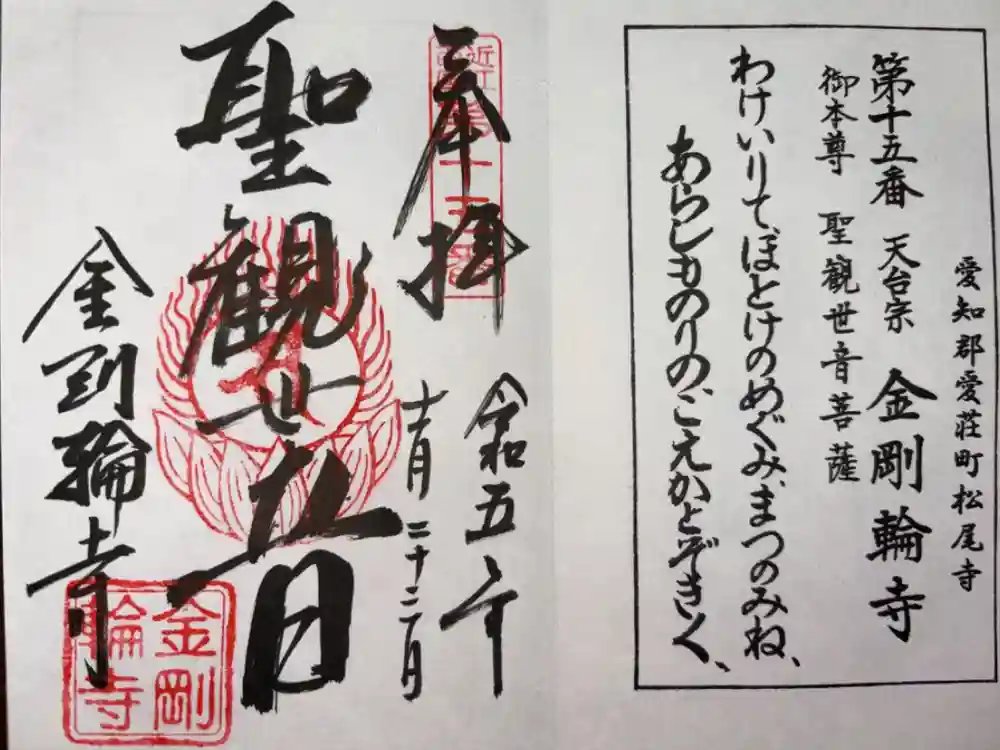 愛知郡愛荘町松尾寺
第十五番 天台宗 金剛輪寺
御本尊 聖観世音菩薩
わけいりて、ほとけのめぐみ、まつのみね、
あらしものりの、こえかとぞきく、
奉拝
令和五年
十一月二十三日
聖観世音
金剛輪寺
金剛
輪寺